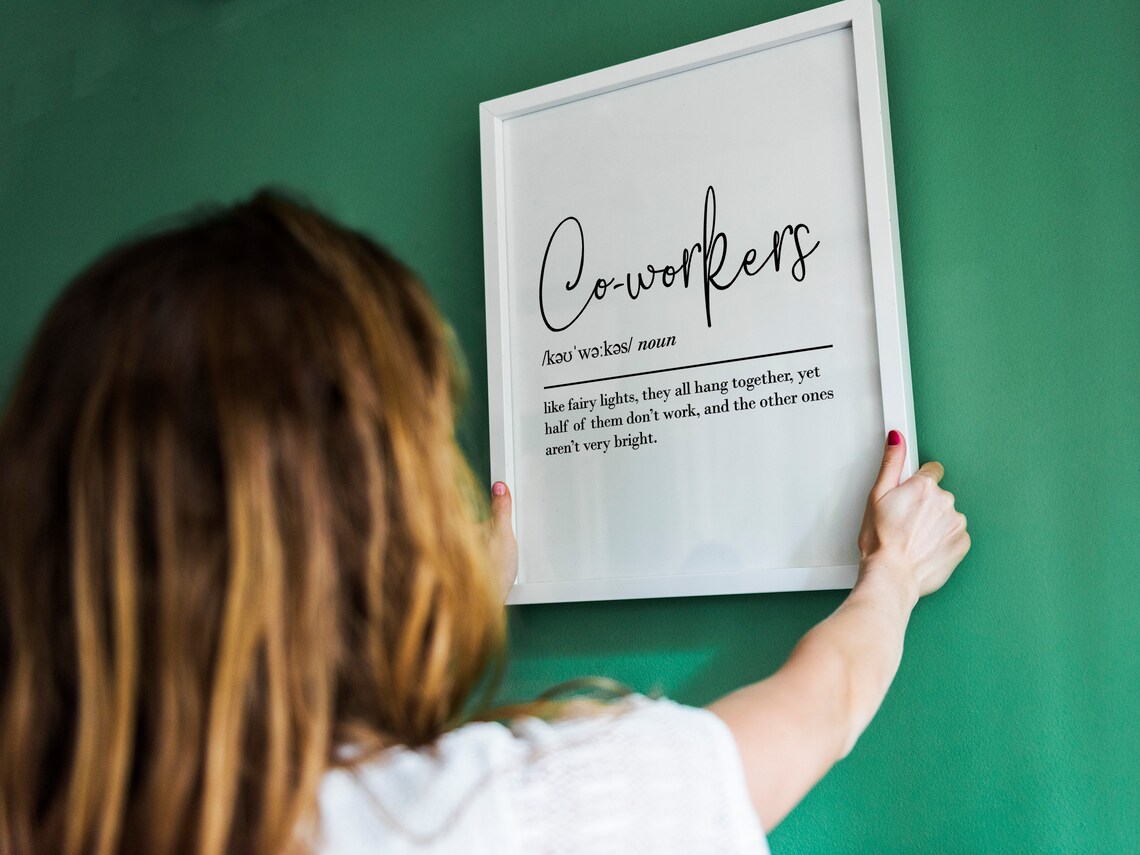 Co-workers
/kəʊˈwə:kəs/ noun
like fairy lights, they all hang together, yet
half of them don’t work, and the other ones
aren’t very bright.